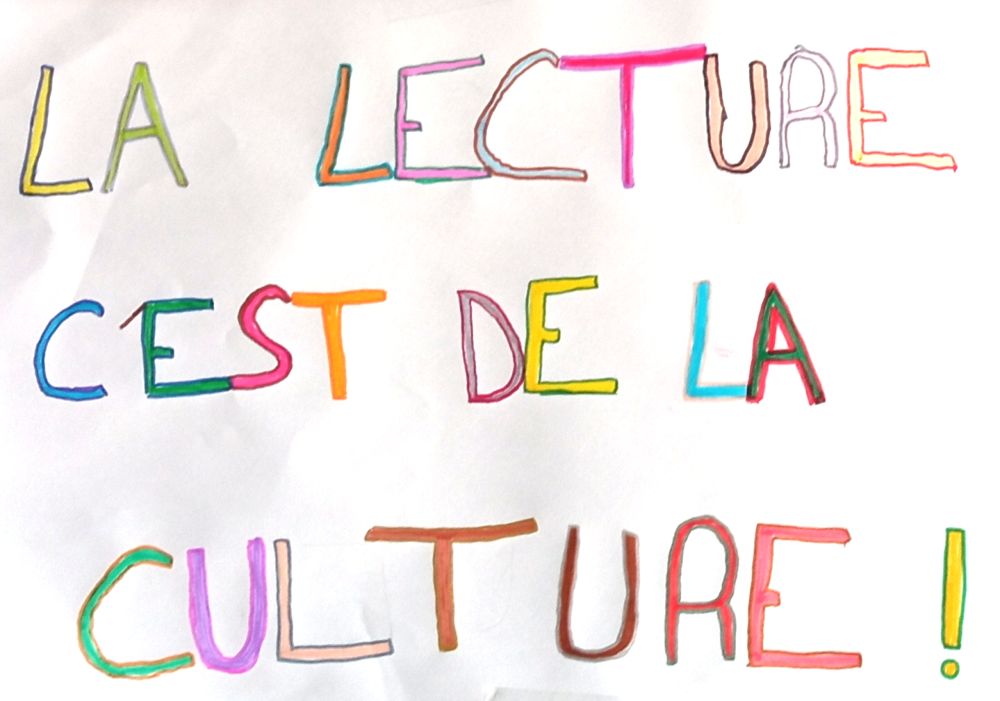 LA LECTURE
C'EST DE LA
CULTURE !